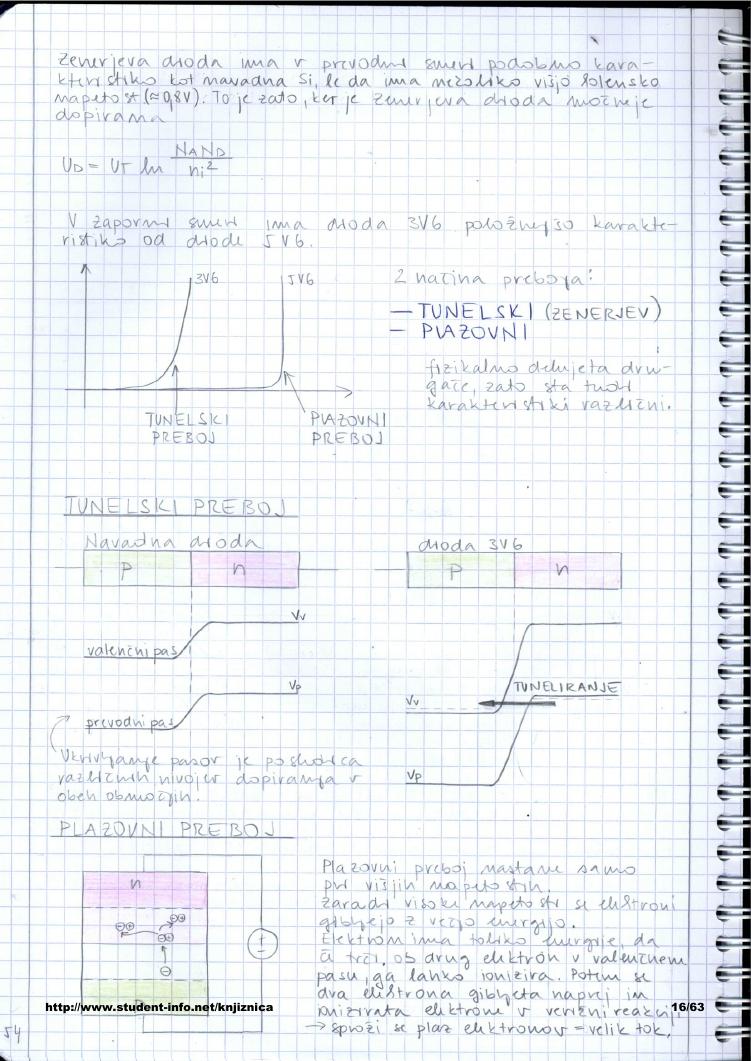 Zenerjeva dioda ima v prevodni smeri podobno kara-
kteristiko kot navadna Si, le da ima nekoliko višjo kolensko
napetost (≈0,8V). To je zato, ker je zenerjeva dioda močneje
dopirana
UD = UT ln NAND
ni²
V zaporni smeri ima dioda 3V6 položnejšo karakte-
ristiko od diode 5V6.
3V6
5V6
2 načina preboja:
— TUNELSKI (ZENERJEV)
— PLAZOVNI
fizikalno delujeta dru-
gače, zato sta tudi
karakteristiki različni.
TUNELSKI
PREBOJ
PLAZOVNI
PREBOJ
TUNELSKI PREBOJ
Navadna dioda
P n
Vv
valenčni pas
Vp
prevodni pas
Ukrivljanje pasov je posledica
različnih nivojev dopiranja v
obeh območjih.
dioda 3V6
P n
TUNELIRANJE
Vv
Vp
PLAZOVNI PREBOJ
n
Plazovni preboj nastane samo
pri višjih napetostih.
Zaradi visoke napetosti se elektroni
gibljejo z večjo energijo.
Elektron ima toliko energije, da
če trči ob drug elektron v valenčnem
pasu, ga lahko ionizira. Potem se
dva elektrona gibljeta naprej in
ionizirata elektrone v verižni reakciji
→ sproži se plaz elektronov = velik tok.
http://www.student-info.net/knjiznica
16/63
54